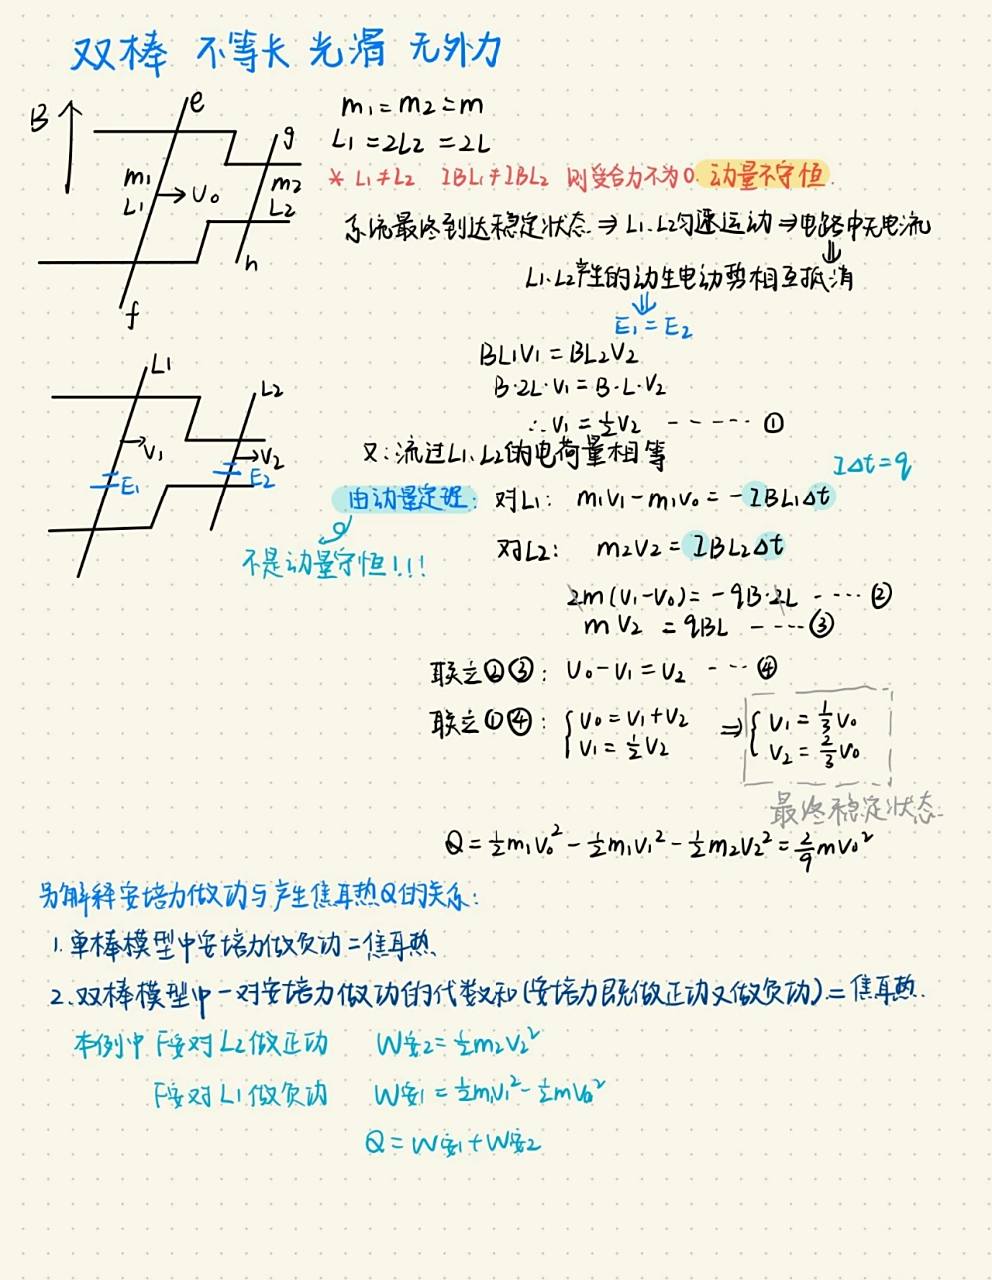 双棒 不等长 光滑 无外力
B
e
g
m₁
L₁
v₀
m₂
L₂
h
f
m₁=m₂=m
L₁=2L₂=2L
* L₁≠L₂ IBL₁≠IBL₂ 则受合力不为0. 动量不守恒.
系统最终到达稳定状态 ⇒ L₁.L₂匀速运动 ⇒ 电路中无电流
⇓
L₁.L₂产生的动生电动势相互抵消
⇓
E₁=E₂
L₁
L₂
v₁
v₂
E₁
E₂
BL₁V₁=BL₂V₂
B·2L·V₁=B·L·V₂
∴V₁=½V₂ ------ ①
又:流过L₁.L₂的电荷量相等
I△t=q
由动量定理: 对L₁: m₁v₁-m₁v₀=-IBL₁△t
不是动量守恒!!!
对L₂: m₂v₂=IBL₂△t
2m(v₁-v₀)=-qB·2L ---- ②
mv₂=qBL ---- ③
联立②③: v₀-v₁=v₂ --- ④
联立①④: { v₀=v₁+v₂ ⇒ { v₁=⅓v₀
v₁=½v₂ v₂=⅔v₀
最终稳定状态
Q=½m₁v₀²-½m₁v₁²-½m₂v₂²=2/9mv₀²
另解释安培力做功与产生焦耳热Q的关系:
1. 单棒模型中安培力做负功=焦耳热.
2. 双棒模型中一对安培力做功的代数和(安培力既做正功又做负功)=焦耳热.
本例中 F安对L₂做正功 W安2=½m₂v₂²
F安对L₁做负功 W安1=½m₁v₁²-½mv₀²
Q=W安1+W安2